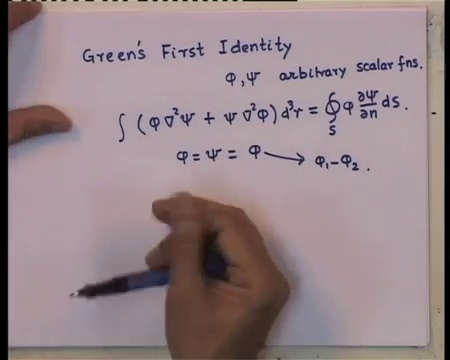 Green's First Identity
φ, ψ arbitrary scalar fns.
∫ (φ∇²ψ + ψ∇²φ) d³r = ∮_S φ ∂ψ/∂n dS.
φ = ψ = Φ → Φ₁ − Φ₂.